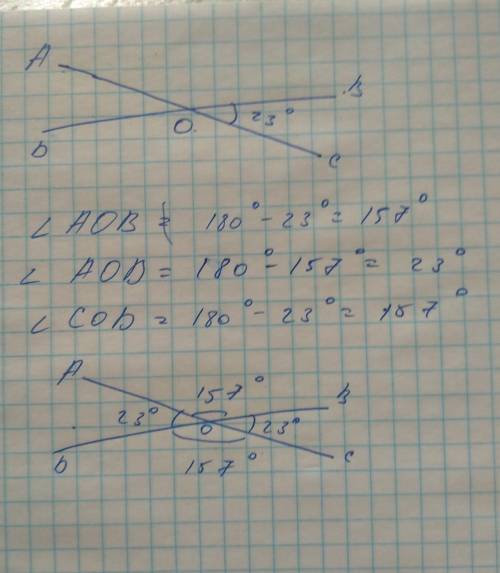 A
B
O
23°
D
C
∠ AOB = 180° - 23° = 157°
∠ AOD = 180° - 157° = 23°
∠ COD = 180° - 23° = 157°
A
157°
B
23°
O
23°
D
C
157°